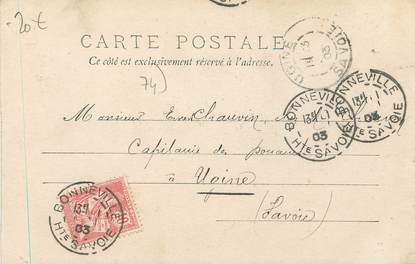 -20€
CARTE POSTALE
Ce côté est exclusivement réservé à l'adresse.
74)
UGINE
SAVOIE
03
BONNEVILLE
03
Hte SAVOIE
BONNEVILLE
03
Hte SAVOIE
Monsieur Chauvin
Capitaine des Douanes
à Ugine
(Savoie)
BONNEVILLE
03
Hte SAVOIE
10